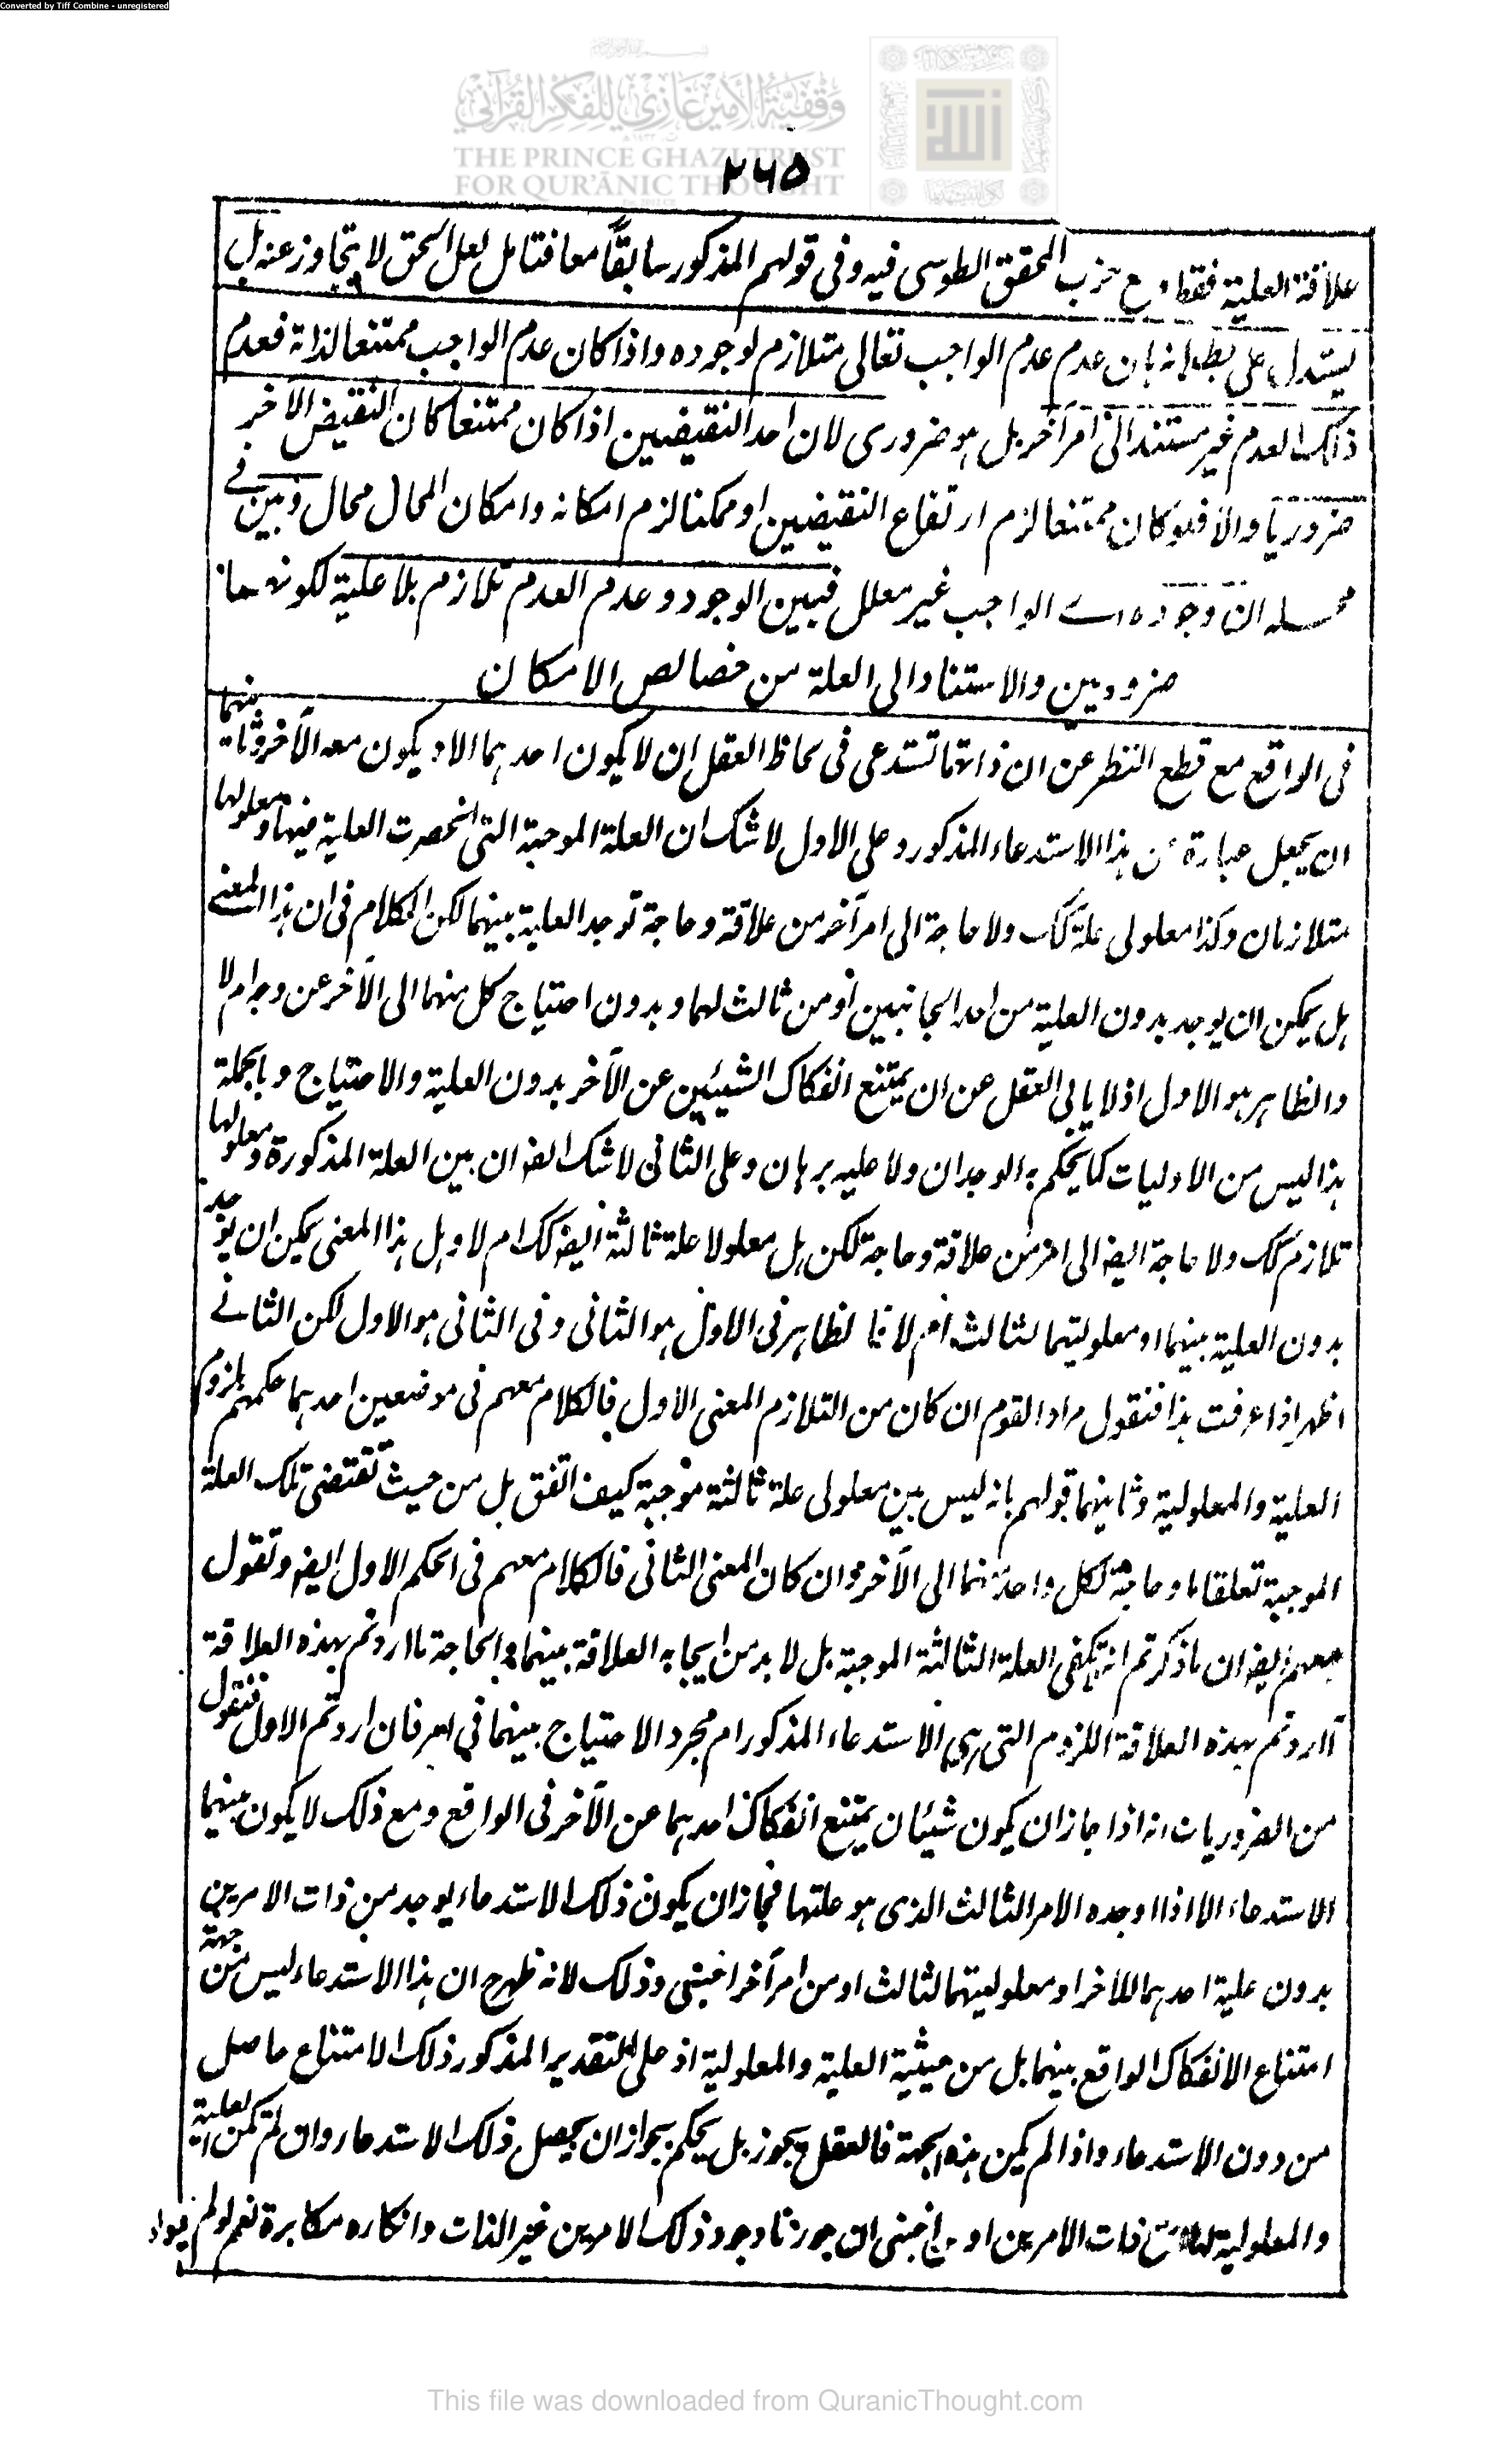 Converted by Tiff Combine - unregistered
وَقْفِيَّةُ الأَمِيرِ غَازِي لِلفِكْرِ القُرْآنِيِّ
THE PRINCE GHAZI TRUST
FOR QUR'ĀNIC THOUGHT
٢٦٥
علاقة العلية فقط حزب المحقق الطوسى فيه وفى قولهم المذكور سابقًا معا فتامل لعل الحق لا يتجاوز عنه بل
يستدل على بطلانه بان عدم عدم الواجب تعالى متلازم لوجوده واذا كان عدم الواجب ممتنعا لذاته فعدم
ذلك العدم غير مستند الى امر آخر بل هو ضرورى لان احد النقيضين اذا كان ممتنعا كان النقيض الآخر
ضروريا والا فلو كان ممتنعا لزم ارتفاع النقيضين او ممكنا لزم امكانه وامكان المحال محال وبين فى
محله ان وجوده اے الواجب غير معلل فبين الوجود وعدم العدم تلازم بلا علية لكونهما
ضروريين والاستناد الى العلة من خصائص الامكان
فى الواقع مع قطع النظر عن ان ذاتهما تستدعى فى لحاظ العقل ان لا يكون احدهما الا ويكون معه الآخر وثانيهما
ان يجعل عبارة عن هذا الاستدعاء المذكور وعلى الاول لا شك ان العلة الموجبة التى انحصرت العلية فيها ومعلولها
متلازمان وكذا معلولى علة كك ولا حاجة الى امر آخر من علاقة وحاجة توجد العلية بينهما لكن الكلام فى ان هذا المعنے
هل يمكن ان يوجد بدون العلية من احد الجانبين او من ثالث لهما وبدون احتياج كل منهما الى الآخر عن وجه ام لا
والظاهر هو الاول اذ لا يابى العقل عن ان يمتنع انفكاك الشيئين عن الآخر بدون العلية والاحتياج وبالجملة
هذا ليس من الاوليات كما يحكم به الوجدان ولا عليه برهان وعلى الثانى لا شك ايضا ان بين العلة المذكورة ومعلولها
تلازم كك ولا حاجة ايضا الى امر من علاقة وحاجة لكن هل معلولا علة ثالثة ايضا كك ام لا وهل هذا المعنى يمكن ان يوجد
بدون العلية بينهما او معلوليتهما لثالث ام لا فالظاهر فى الاول هو الثانى وفى الثانى هو الاول لكن الثانے
اظهر اذا عرفت هذا فنقول مراد القوم ان كان من التلازم المعنى الاول فالكلام معهم فى موضعين احدهما حكمهم بلزوم
العلية والمعلولية وثانيهما قولهم بانه ليس بين معلولى علة ثالثة موجبة كيف اتفق بل من حيث تقتضى تلك العلة
الموجبة تعلقا ما وحاجة لكل واحد منهما الى الآخر وان كان المعنى الثانى فالكلام معهم فى الحكم الاول ايضا ونقول
معهم ايضا ان ما ذكرتم انه تكفى العلة الثالثة الموجبة بل لا بد من ايجابه العلاقة بينهما والحاجة ما اردتم بهذه العلاقة
أاردتم بهذه العلاقة اللزوم التى هى الاستدعاء المذكور ام مجرد الاحتياج بينهما فى امر فان اردتم الاول فنقول
من الضروريات انه اذا جاز ان يكون شيئان يمتنع انفكاك احدهما عن الآخر فى الواقع ومع ذلك لا يكون بينهما
الاستدعاء الا اذا اوجده الامر الثالث الذى هو علتها فجاز ان يكون ذلك الاستدعاء يوجد من ذات الامرين
بدون علية احدهما للآخر او معلوليتهما لثالث او من امر آخر اجنبى وذلك لانه ظهر ح ان هذا الاستدعاء ليس من جهة
امتناع الانفكاك الواقع بينهما بل من حيثية العلية والمعلولية اذ على التقدير المذكور ذلك الامتناع حاصل
من دون الاستدعاء واذا لم يكن هذه الجهة فالعقل يجوز بل يحكم بجواز ان يحصل ذلك الاستدعاء وان لم تكن العلية
والمعلولية ذات الامرين او اجنبى ان جوزنا وجود ذلك الامرين غير الذات وانكاره مكابرة نعم لو لم
This file was downloaded from QuranicThought.com